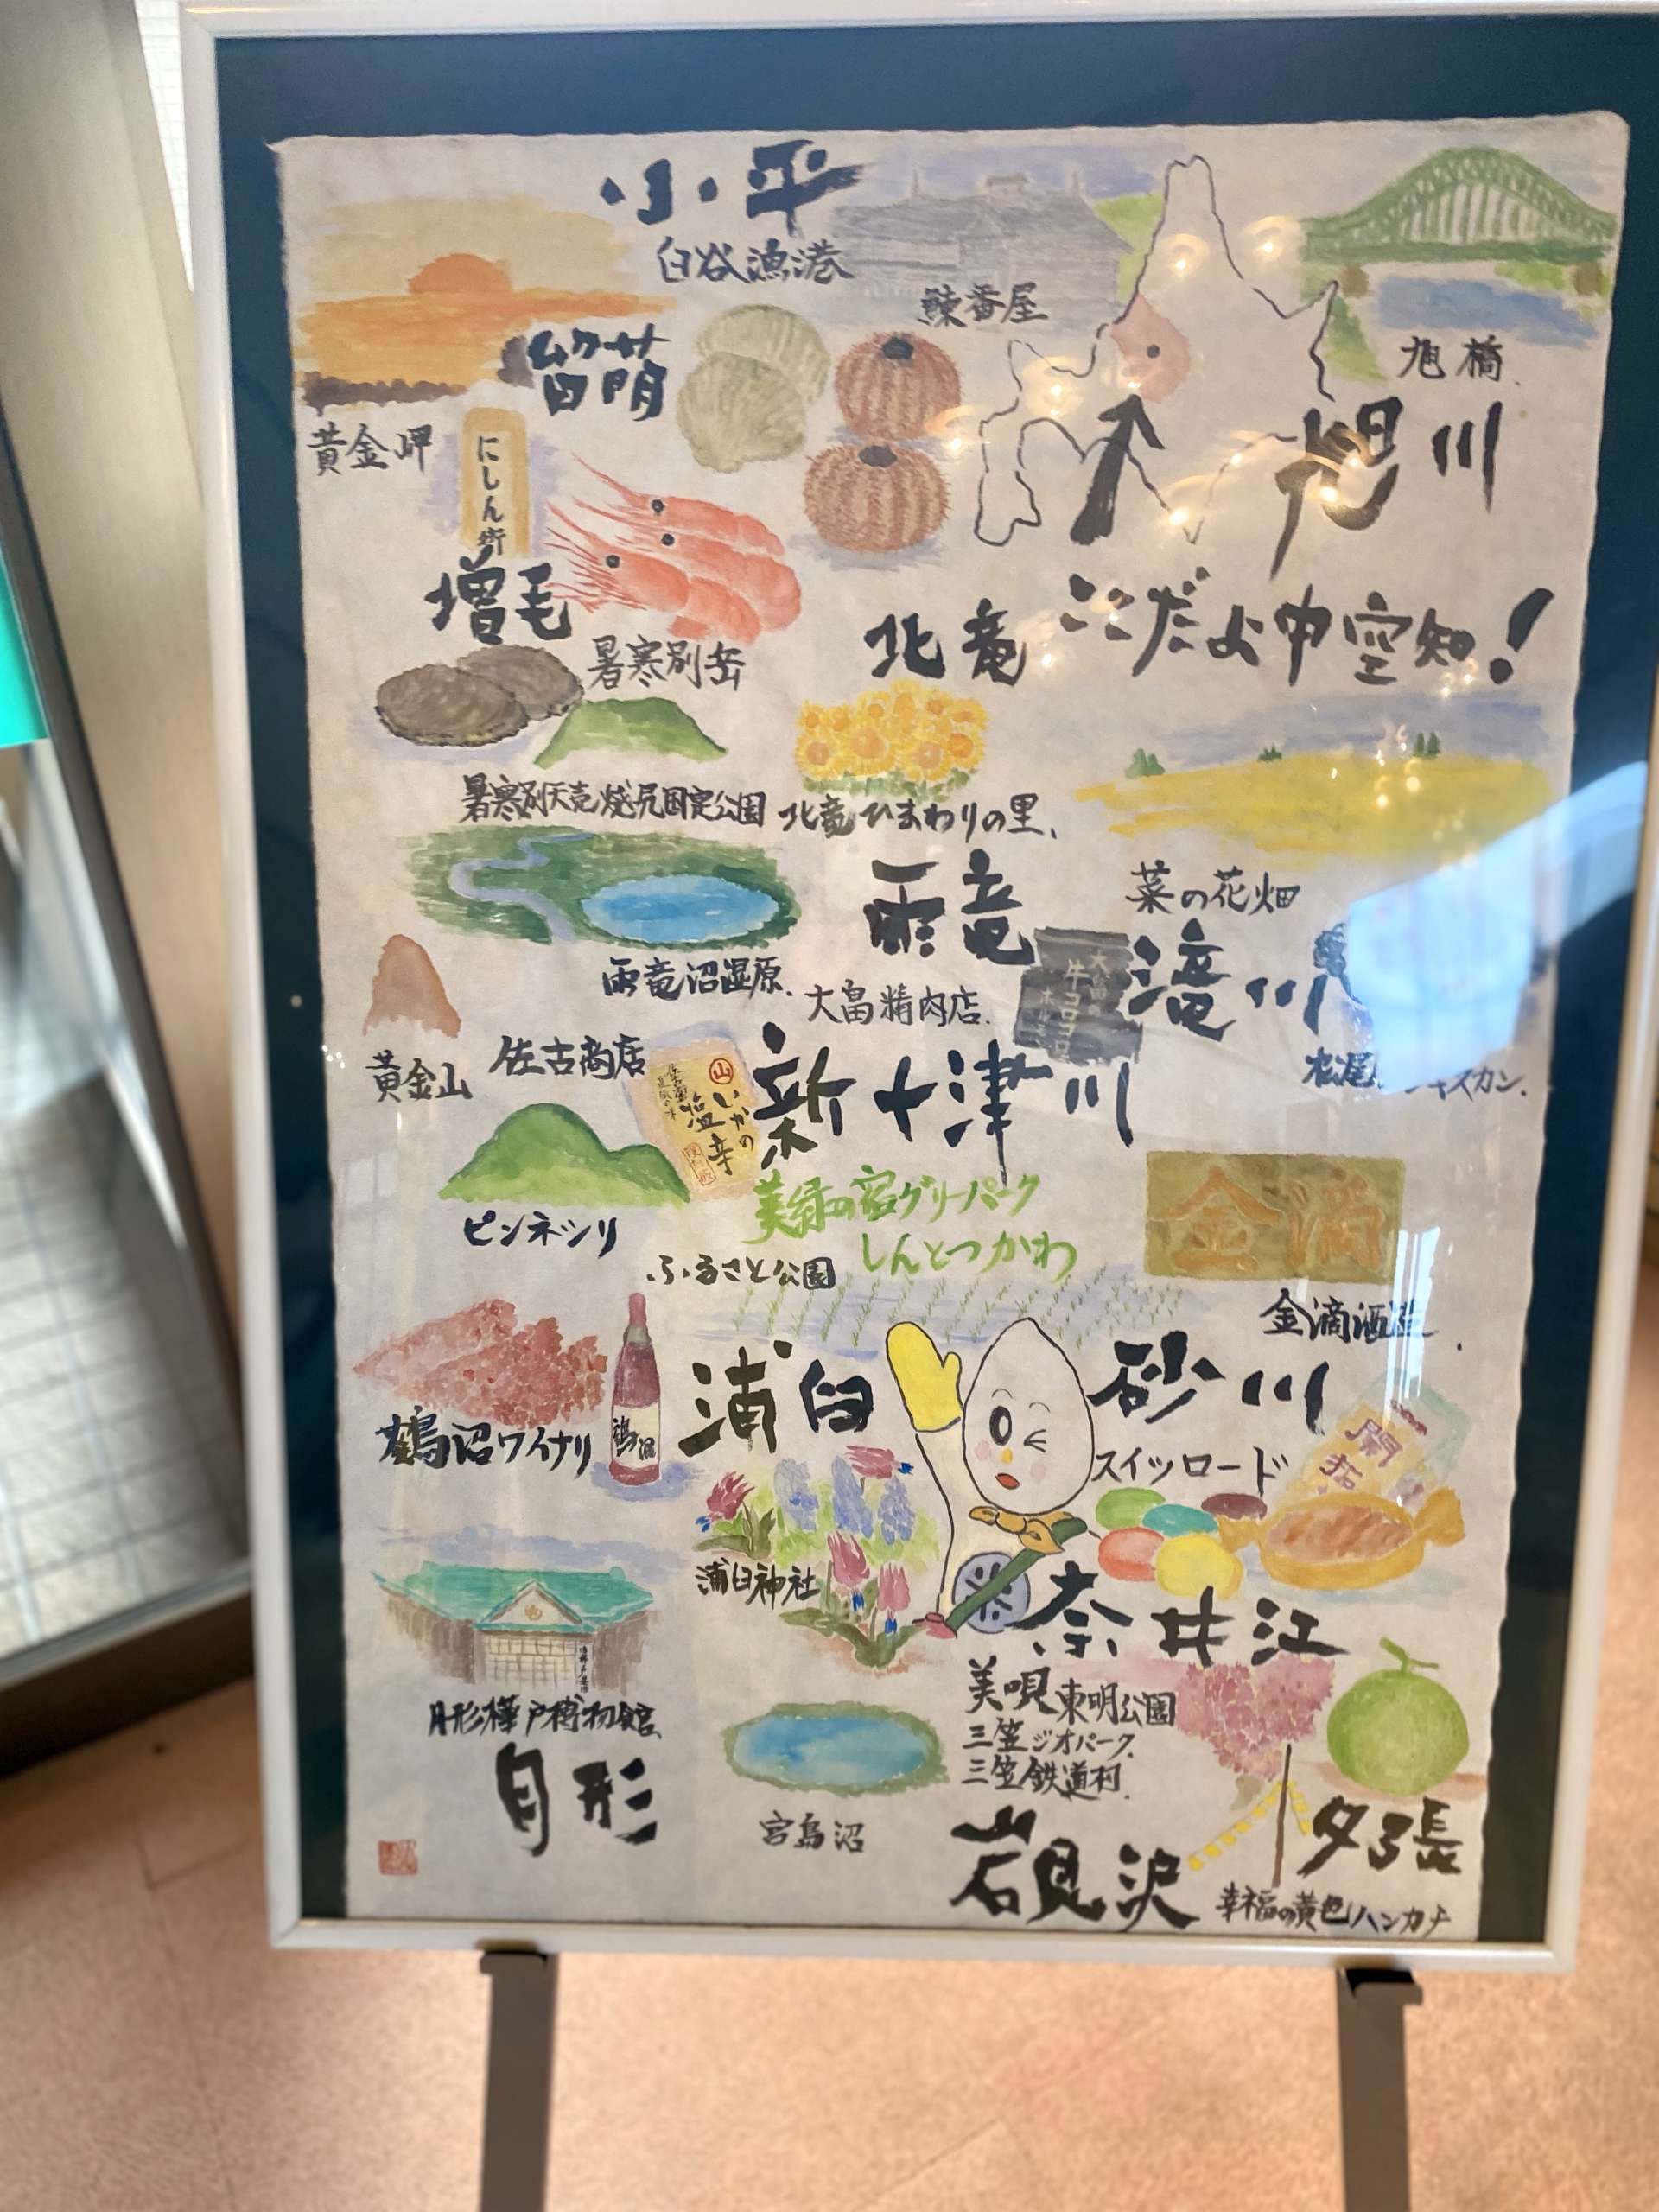 小平
臼谷漁港
鰊番屋
旭橋
留萌
黄金岬
旭川
にしん街
増毛
暑寒別岳
北竜
ここだよ中空知!
暑寒別天売焼尻国定公園
北竜ひまわりの里、
菜の花畑
雨竜
滝川
雨竜沼湿原.
大畠精肉店.
大畠の
牛コロコロ
ホルモン
黄金山
佐古商店
いかの
塩辛
新十津川
松尾
ギスカン.
ピンネシリ
美緑の宿グリーンパーク
しんとつかわ
ふるさと公園
金滴
金滴酒造
鶴沼ワイナリ
鶴沼
浦臼
砂川
スイーツロード
開拓
浦臼神社
米
奈井江
月形樺戸博物館
月形
宮島沼
美唄東明公園
三笠ジオパーク.
三笠鉄道村.
岩見沢
夕張
幸福の黄色いハンカチ